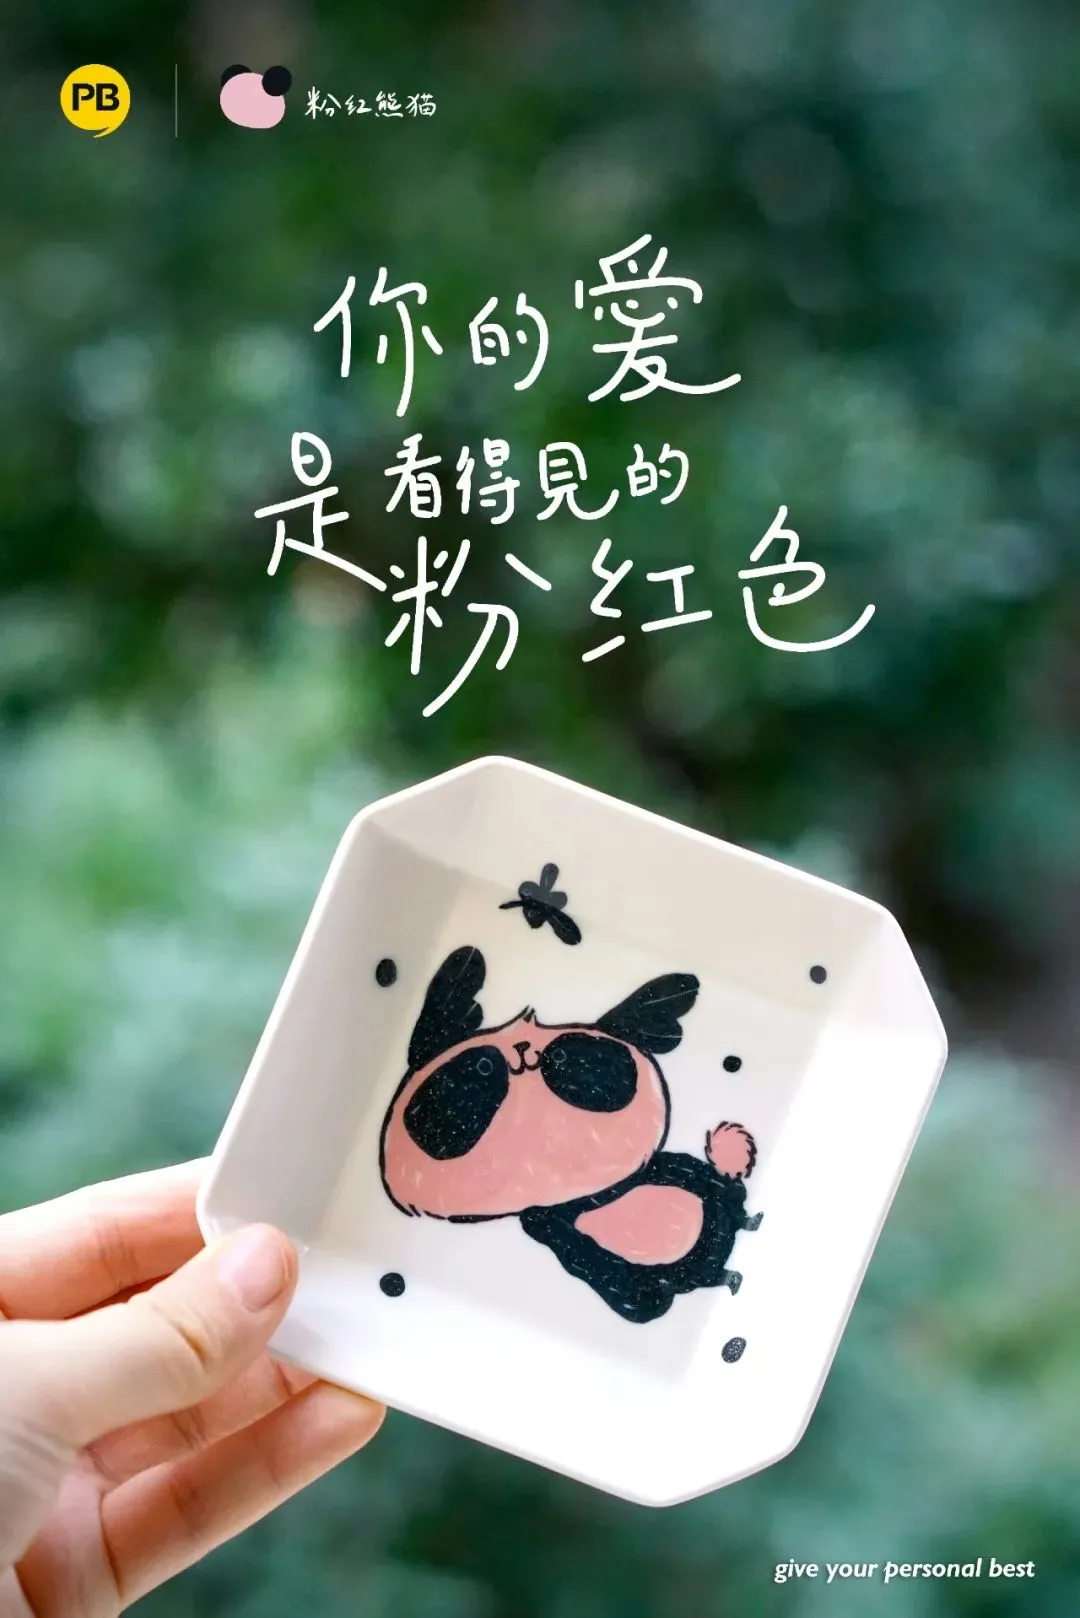 PB
粉红熊猫
你的愛
是看得見的
粉红色
give your personal best